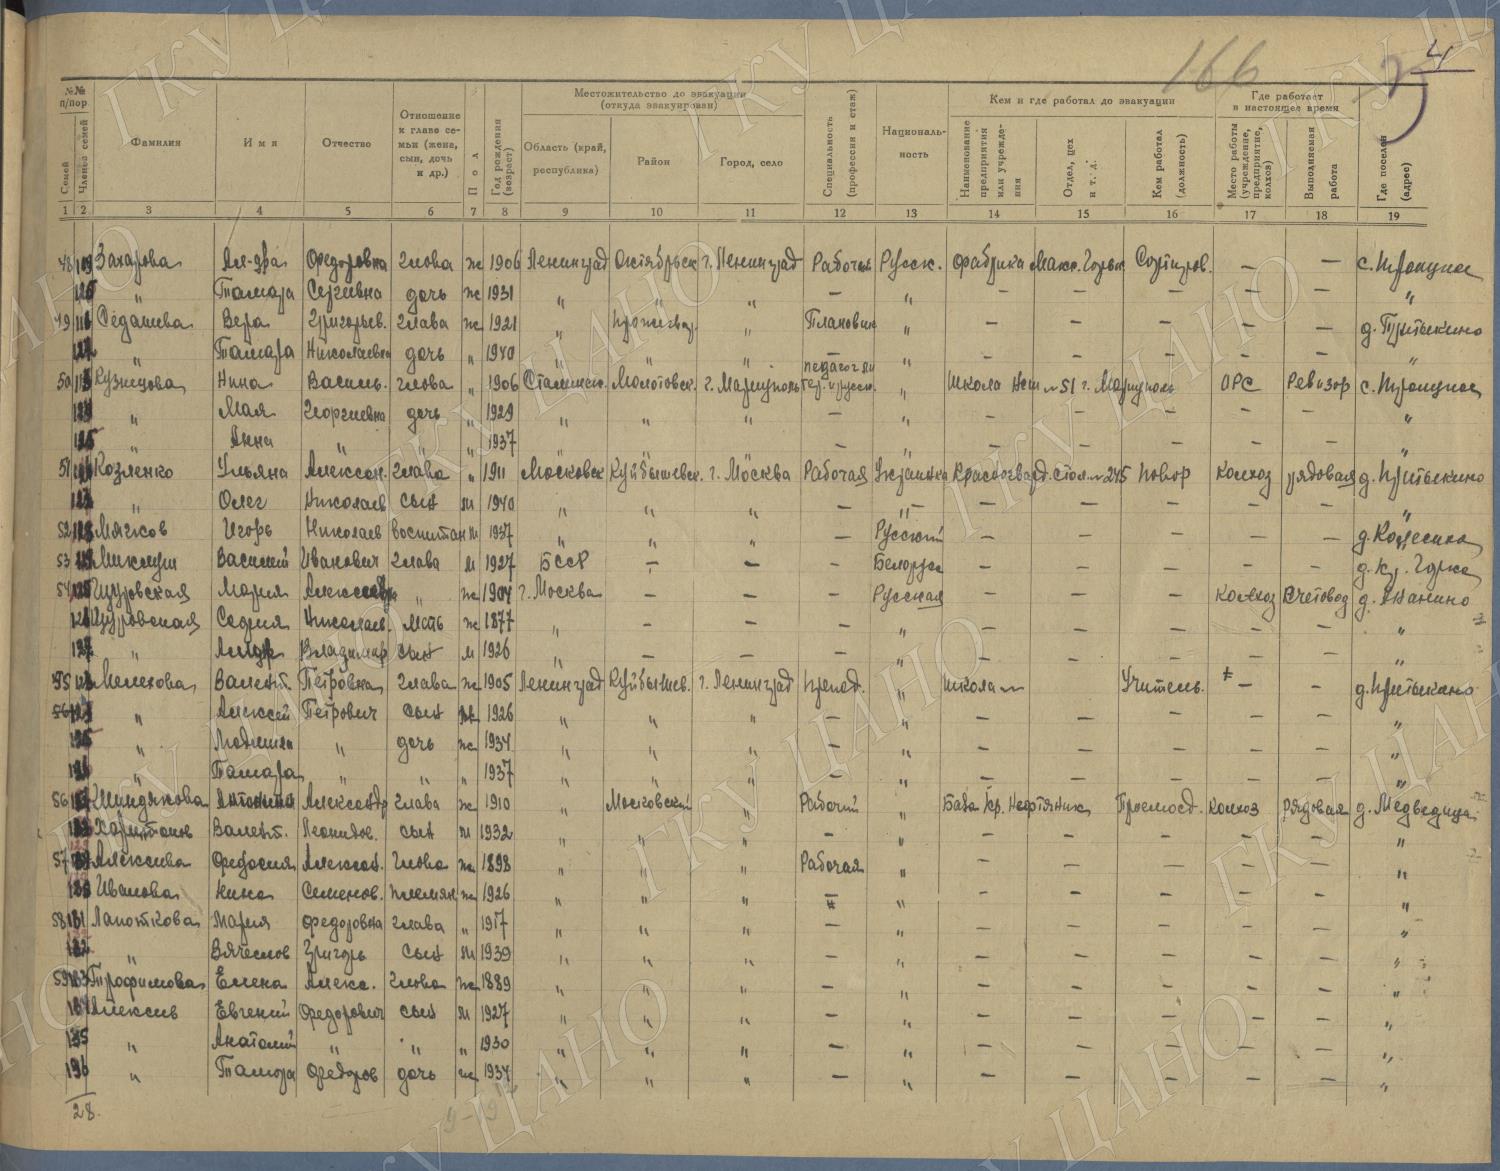 166
4
№№ п/пор
Семей
Члены семей
Фамилия
Имя
Отчество
Отношение к главе семьи (жена, сын, дочь и др.)
Пол
Год рождения (возраст)
Местожительство до эвакуации (откуда эвакуирован)
Область (край, республика)
Район
Город, село
Специальность (профессия и стаж)
Национальность
Кем и где работал до эвакуации
Наименование предприятия или учреждения
Отдел, цех и т. д.
Кем работал (должность)
Где работает в настоящее время
Место работы (учреждение, предприятие, колхоз)
Выполняемая работа
Где поселен (адрес)
1 2 3 4 5 6 7 8 9 10 11 12 13 14 15 16 17 18 19
48 Захарова Ал-дра Федоровна глава ж 1906 Ленинград Октябрьск г. Ленинград Рабочая Русск. фабрика Макс. Горьк Сортиров. — — с. Троицкое
„ Тамара Сергеевна дочь ж 1931 „ „ „ — „ — — — — — „
49 Седашева Вера Григорьев. глава ж 1921 „ „ Плановик „ — — — — — д. Притыкино
„ Тамара Николаевна дочь „ 1940 „ „ „ — „ — — — — — „
50 Кузнецова Нина Василь. глава „ 1906 Сталинск. Молотовск. г. Мариуполь педагог „ школа №51 г. Мариуполь ОРС Ревизор с. Троицкое
„ Мая Георгиевна дочь „ 1929 „ „ „ — „ — — — — — „
„ Анна „ „ „ 1937 „ „ „ — „ — — — „
51 Козленко Ульяна Алексан. глава „ 1911 Московск Куйбышевск. г. Москва Рабочая Украинка Красногвард. стол. №245 повар колхоз рядовая д. Притыкино
„ Олег Николаев сын м 1940 „ „ „ — „ — — — — — „
52 Мягков Игорь Николаев воспитан м 1937 „ „ „ — Русский — — — — — д. Колесиха
53 Миклуш Василий Иванович глава м 1927 БССР — — — Белорус — — — — — д. Кр. Горка
54 Цуровская Мария Алексеевна „ ж 1904 г. Москва — — — Русская — — — колхоз Счетовод д. Жанино
Цуровская София Николаев. мать ж 1877 „ — — — „ — — — — — „
„ Владимир сын м 1926 „ — — — „ — — — — — „
55 Мелехова Валент. Петровна глава ж 1905 Ленинград Куйбышев. г. Ленинград препод. „ школа № Учитель. — — д. Притыкино
„ Алексей Петрович сын м 1926 „ „ „ — „ — — — — — „
„ Людмила „ дочь ж 1934 „ „ „ — „ — — — — — „
„ Тамара „ „ „ 1937 „ „ „ — „ — — — — — „
56 Шиндякова Антонина Александр глава ж 1910 „ Московский „ Рабочий „ База Кр. Нефтяник Приемосд. колхоз рядовая д. Медведица
Харитонов Валент. Леонидов. сын м 1932 „ „ „ — „ — — — — — „
57 Алексеева Федосия Алексан. глава ж 1898 „ „ „ Рабочая „ — — — — — „
Иванова Нина Семенов. племян ж 1926 „ „ „ — „ — — — — — „
58 Лапоткова Мария Федоровна глава „ 1917 „ „ „ — „ — — — — — „
„ Вячеслов Григорь сын м 1939 „ „ „ — „ — — — — — „
59 Трофимова Елена Алекс. глава ж 1889 „ „ „ — „ — — — — — „
Алексеев Евгений Федорович сын м 1927 „ „ „ — „ — — — — — „
135 „ Анатолий „ „ „ 1930 „ „ „ — „ — — — — — „
136 „ Тамара Федоров дочь ж 1934 „ „ „ — „ — — — — — „
28.
ГКУ ЦАНО